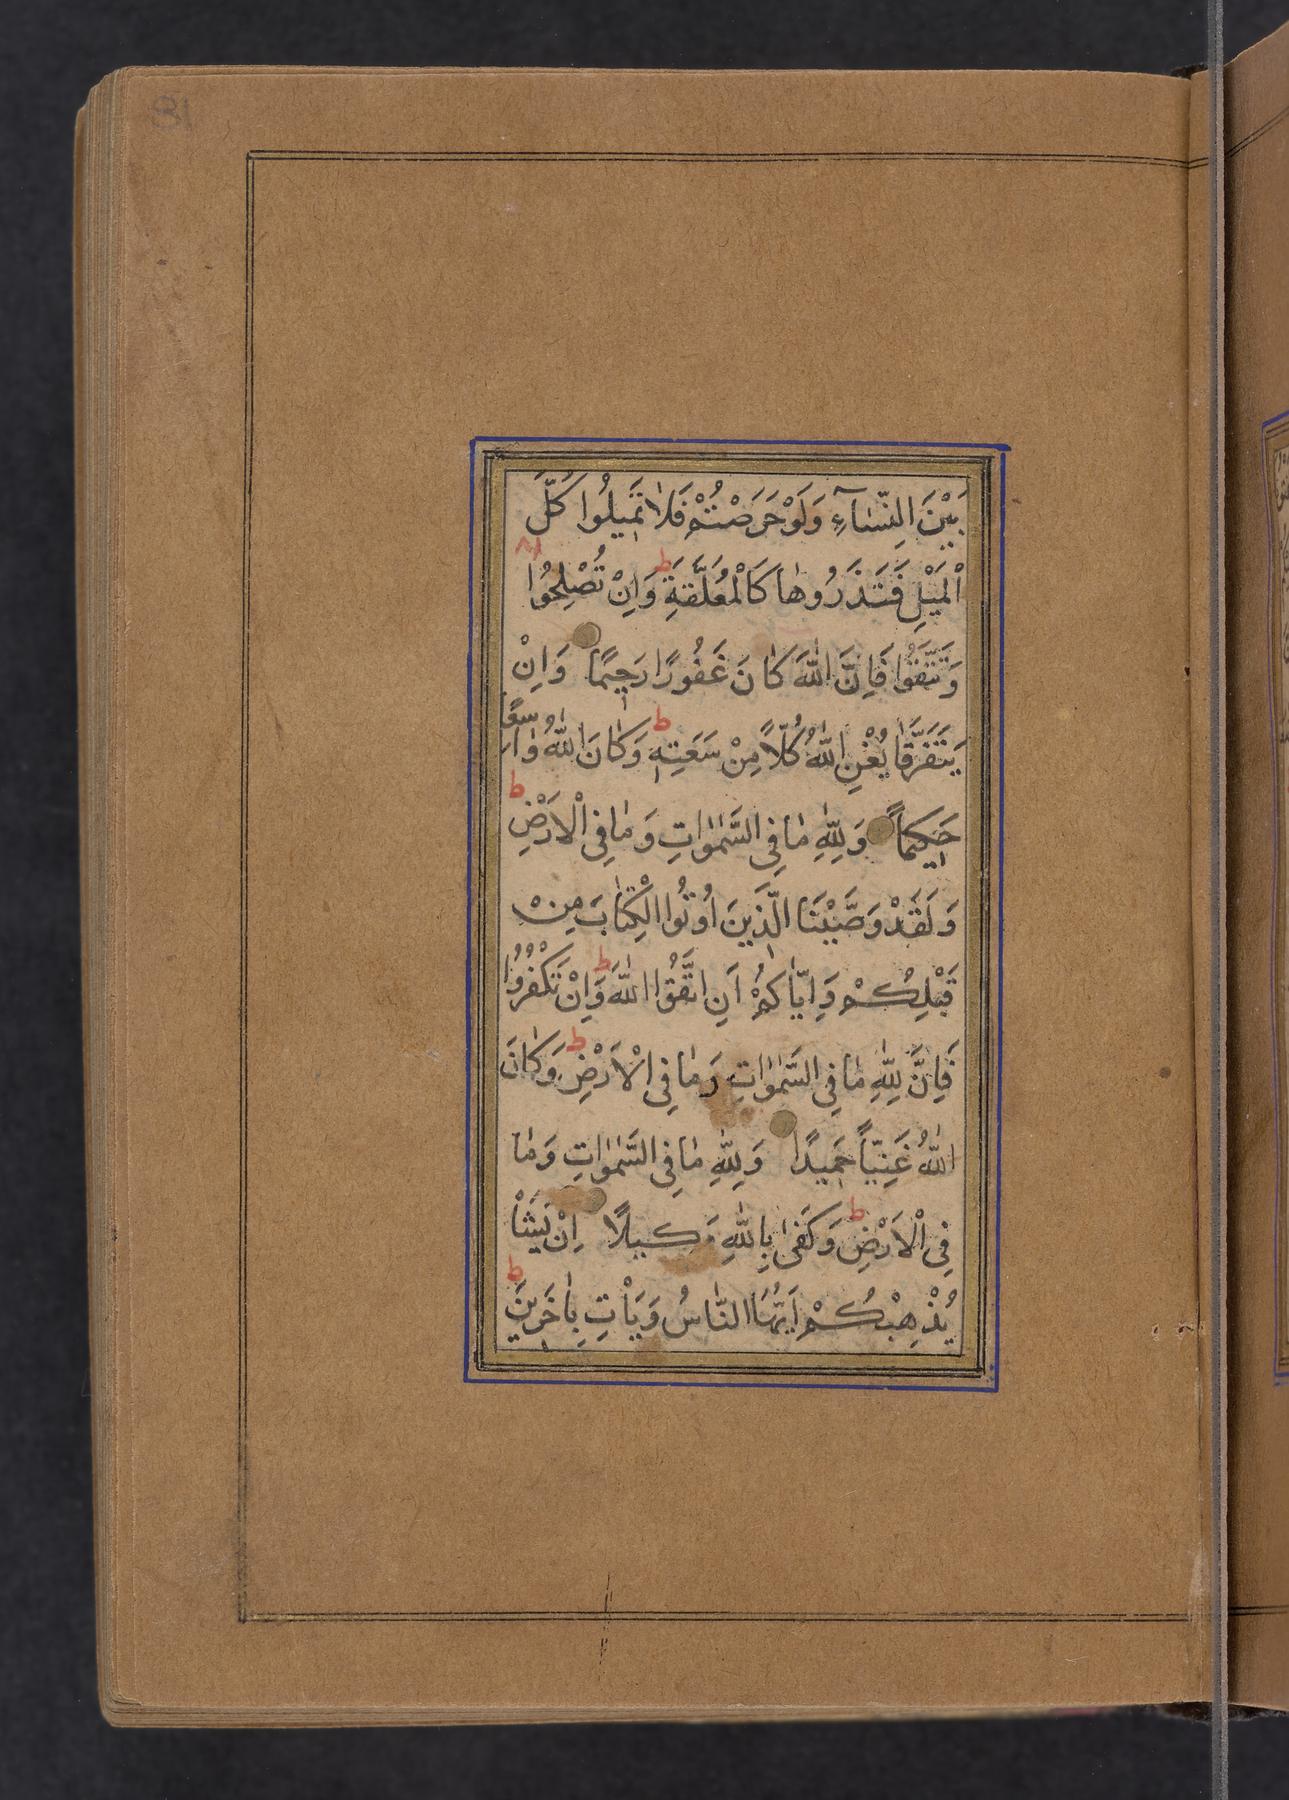 بَيْنَ النِّسَآءِ وَلَوْحَرَصْتُمْ فَلَا تَمِيلُوا كُلَّ
اْلمَيْلِ فَتَذَرُوهَا كَالْمُعَلَّقَةِ ط وَاِنْ تُصْلِحُوا
وَتَتَّقُوا فَاِنَّ اللّٰهَ كَانَ غَفُورًا رَحِيمًا وَاِنْ
يَتَفَرَّقَا يُغْنِ اللّٰهُ كُلًّا مِنْ سَعَتِهِ ط وَكَانَ اللّٰهُ وَاسِعًا
حَكِيمًا وَلِلّٰهِ مَا فِى السَّمٰوَاتِ وَمَا فِى الْاَرْضِ ط
وَلَقَدْ وَصَّيْنَا الَّذِينَ اُوتُوا الْكِتَابَ مِنْ
قَبْلِكُمْ وَاِيَّاكُمْ اَنِ اتَّقُوا اللّٰهَ ط وَاِنْ تَكْفُرُوا
فَاِنَّ لِلّٰهِ مَا فِى السَّمٰوَاتِ وَمَا فِى الْاَرْضِ ط وَكَانَ
اللّٰهُ غَنِيًّا حَمِيدًا وَلِلّٰهِ مَا فِى السَّمٰوَاتِ وَمَا
فِى الْاَرْضِ ط وَكَفٰى بِاللّٰهِ وَكِيلًا اِنْ يَشَاْ
يُذْهِبْكُمْ اَيُّهَا النَّاسُ وَيَاْتِ بِاٰخَرِينَ ط